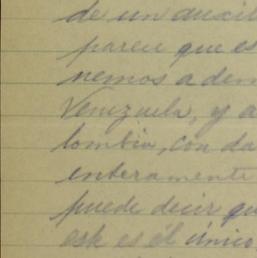 de un auxil
parece que es
nemos a dem
Venezuela, y a
lombia, con da
enteramente
puede decir qu
este es él único